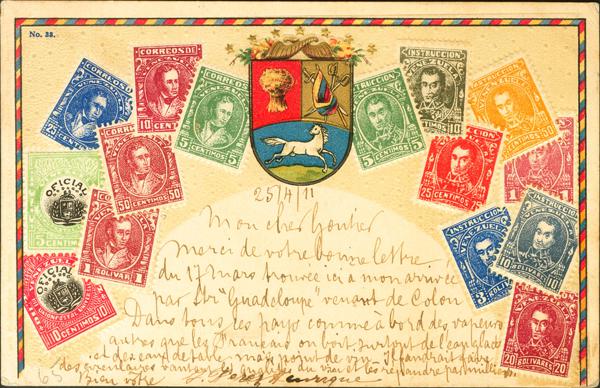 No. 33.
CORREOS DE
10 CENTIMOS
CORREOS DE
25 CENTIMOS
5 CENTIMOS 5
INSTRUCCION
5 CENTIMOS 5
INSTRUCCION
VENEZUELA
10
INSTRUCCION
VENEZUELA
CENTIMOS 50
CORREOS
50 CENTIMOS 50
INSTRUCCION
25 CENTIMOS
1
OFICIAL
5 CENTIMOS
1 BOLIVAR 1
INSTRUCCION
VENEZUELA
3 BOLIVARES
INSTRUCCION
10 BOLIVARES 10
OFICIAL
10 CENTIMOS 10
20 BOLIVARES 20
25/4/11
Mon cher Gontier
Merci de votre bonne lettre
du 17 mars trouvée ici a mon arrivée
par Str "Guadeloupe" venant de Colon
Dans tous les pays comme à bord des vapeurs
autres que les Français on boit surtout de l'eau glacée
et des eaux de table, mais point de vin. Il faudrait faire
des vantant les qualités du vin et les répandre par milliers.
Bien votre